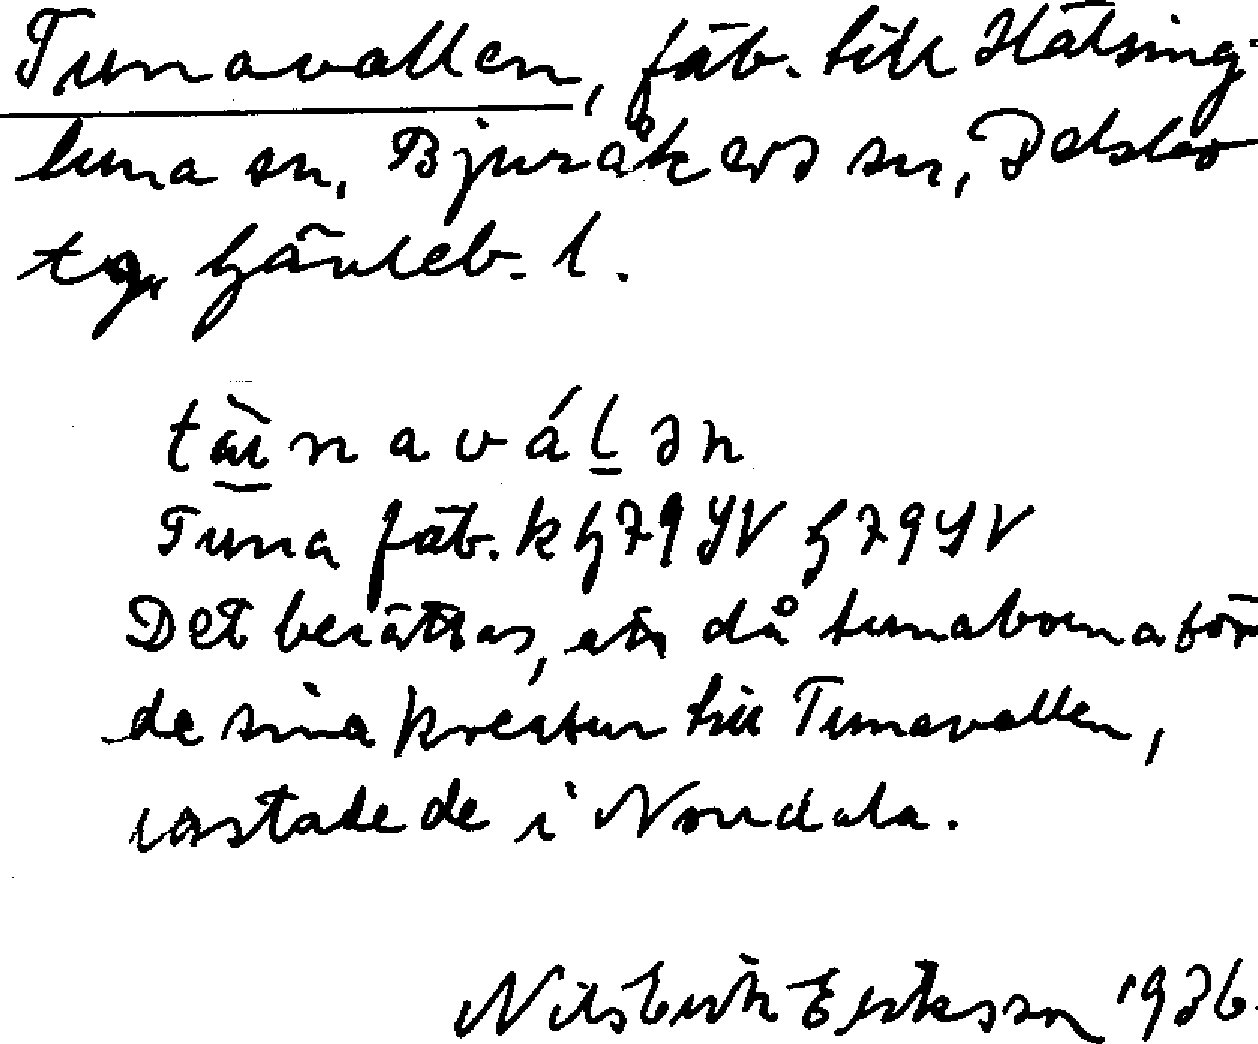 Tunavallen, fäb. till Hälsing-
tuna sn, Bjuråkers sn, Delsbo
tg, Gävleb. l.
Tuna fäb. k G 79 SV G 79 SV
Det berättas, då tunaborna för
de sina kreatur till Tunavallen,
rastade de i Norrdala.
Nils Erik Eriksson 1936.